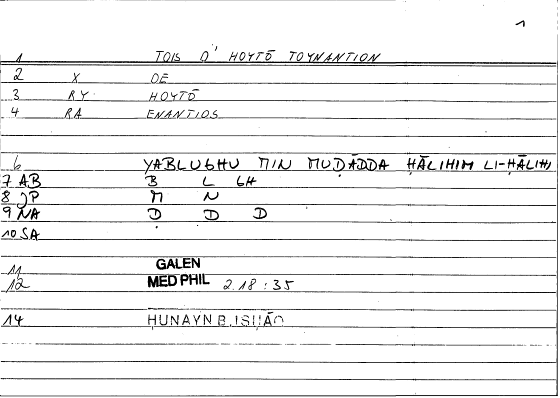 1
1 TOIS D' HOYTŌ TOYNANTION
2 X DE
3 RY HOYTŌ
4 RA ENANTIOS
6 YABLUGHU MIN MUḌĀDDA ḤĀLIHIM LI-ḤĀLIHI
7 AB B L GH
8 JP M N
9 NA Ḍ D D
10 SA
11 GALEN
12 MED PHIL 2.18:35
14 ḤUNAYN B. ISḤĀQ